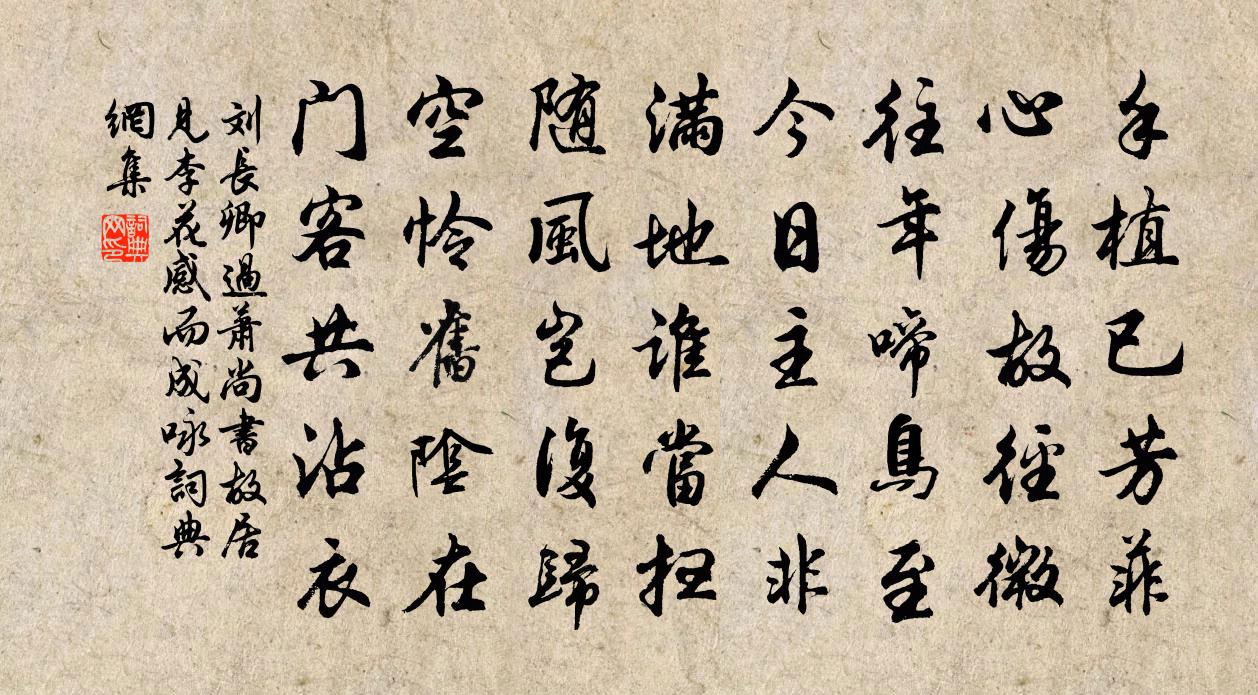 手植已芳菲
心傷故徑微
往年啼鳥至
今日主人非
滿地誰當掃
随風豈復歸
空怜舊陰在
门客共沾衣
刘長卿過蕭尚書故居
見李花感而成咏詞典
網集
詞典網印